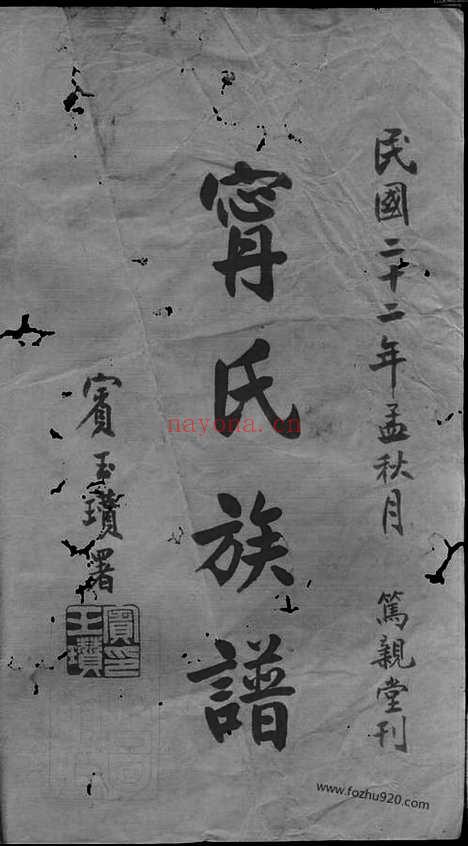 民國二十二年孟秋月 篤親堂刊
甯氏族譜
賓玉瓚署
賓印玉瓚
nayona.cn
www.fozhu920.com